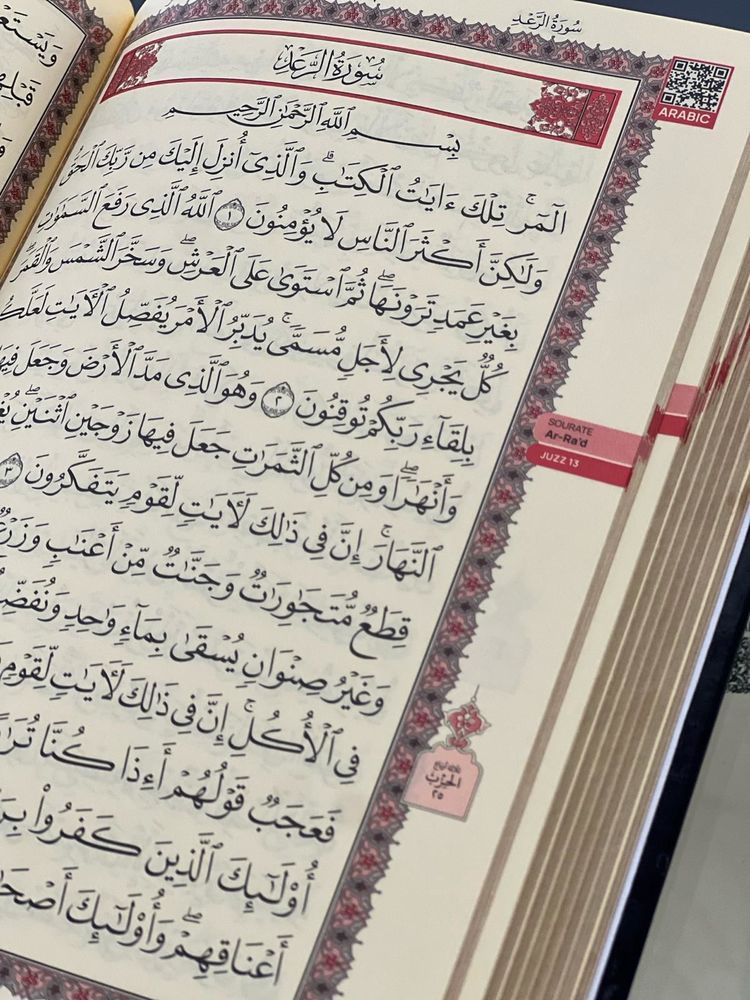 سُورَةُ الرَّعْدِ
ARABIC
سُورَةُ الرَّعْدِ
بِسْمِ ٱللَّهِ ٱلرَّحْمَٰنِ ٱلرَّحِيمِ
الٓمٓرۚ تِلْكَ ءَايَٰتُ ٱلْكِتَٰبِۗ وَٱلَّذِىٓ أُنزِلَ إِلَيْكَ مِن رَّبِّكَ ٱلْحَقُّ
وَلَٰكِنَّ أَكْثَرَ ٱلنَّاسِ لَا يُؤْمِنُونَ ١ ٱللَّهُ ٱلَّذِى رَفَعَ ٱلسَّمَٰوَٰتِ
بِغَيْرِ عَمَدٍ تَرَوْنَهَاۖ ثُمَّ ٱسْتَوَىٰ عَلَى ٱلْعَرْشِۖ وَسَخَّرَ ٱلشَّمْسَ وَٱلْقَمَرَۖ
كُلٌّ يَجْرِى لِأَجَلٍ مُّسَمًّىۚ يُدَبِّرُ ٱلْأَمْرَ يُفَصِّلُ ٱلْءَايَٰتِ
بِلِقَآءِ رَبِّكُمْ تُوقِنُونَ ٢ وَهُوَ ٱلَّذِى مَدَّ ٱلْأَرْضَ وَجَعَلَ
وَأَنْهَٰرًاۖ وَمِن كُلِّ ٱلثَّمَرَٰتِ جَعَلَ فِيهَا زَوْجَيْنِ ٱثْنَيْنِۖ
ٱلنَّهَارَۚ إِنَّ فِى ذَٰلِكَ لَءَايَٰتٍ لِّقَوْمٍ يَتَفَكَّرُونَ ٣
قِطَعٌ مُّتَجَٰوِرَٰتٌ وَجَنَّٰتٌ مِّنْ أَعْنَٰبٍ
وَغَيْرُ صِنْوَانٍ يُسْقَىٰ بِمَآءٍ وَٰحِدٍ
فِى ٱلْأُكُلِۚ إِنَّ فِى ذَٰلِكَ لَءَايَٰتٍ لِّقَوْمٍ
فَعَجَبٌ قَوْلُهُمْ أَءِذَا كُنَّا
أُو۟لَٰٓئِكَ ٱلَّذِينَ كَفَرُوا۟
أَعْنَاقِهِمْۖ وَأُو۟لَٰٓئِكَ
SOURATE
Ar-Ra'd
JUZZ 13
الحزب
٢٥